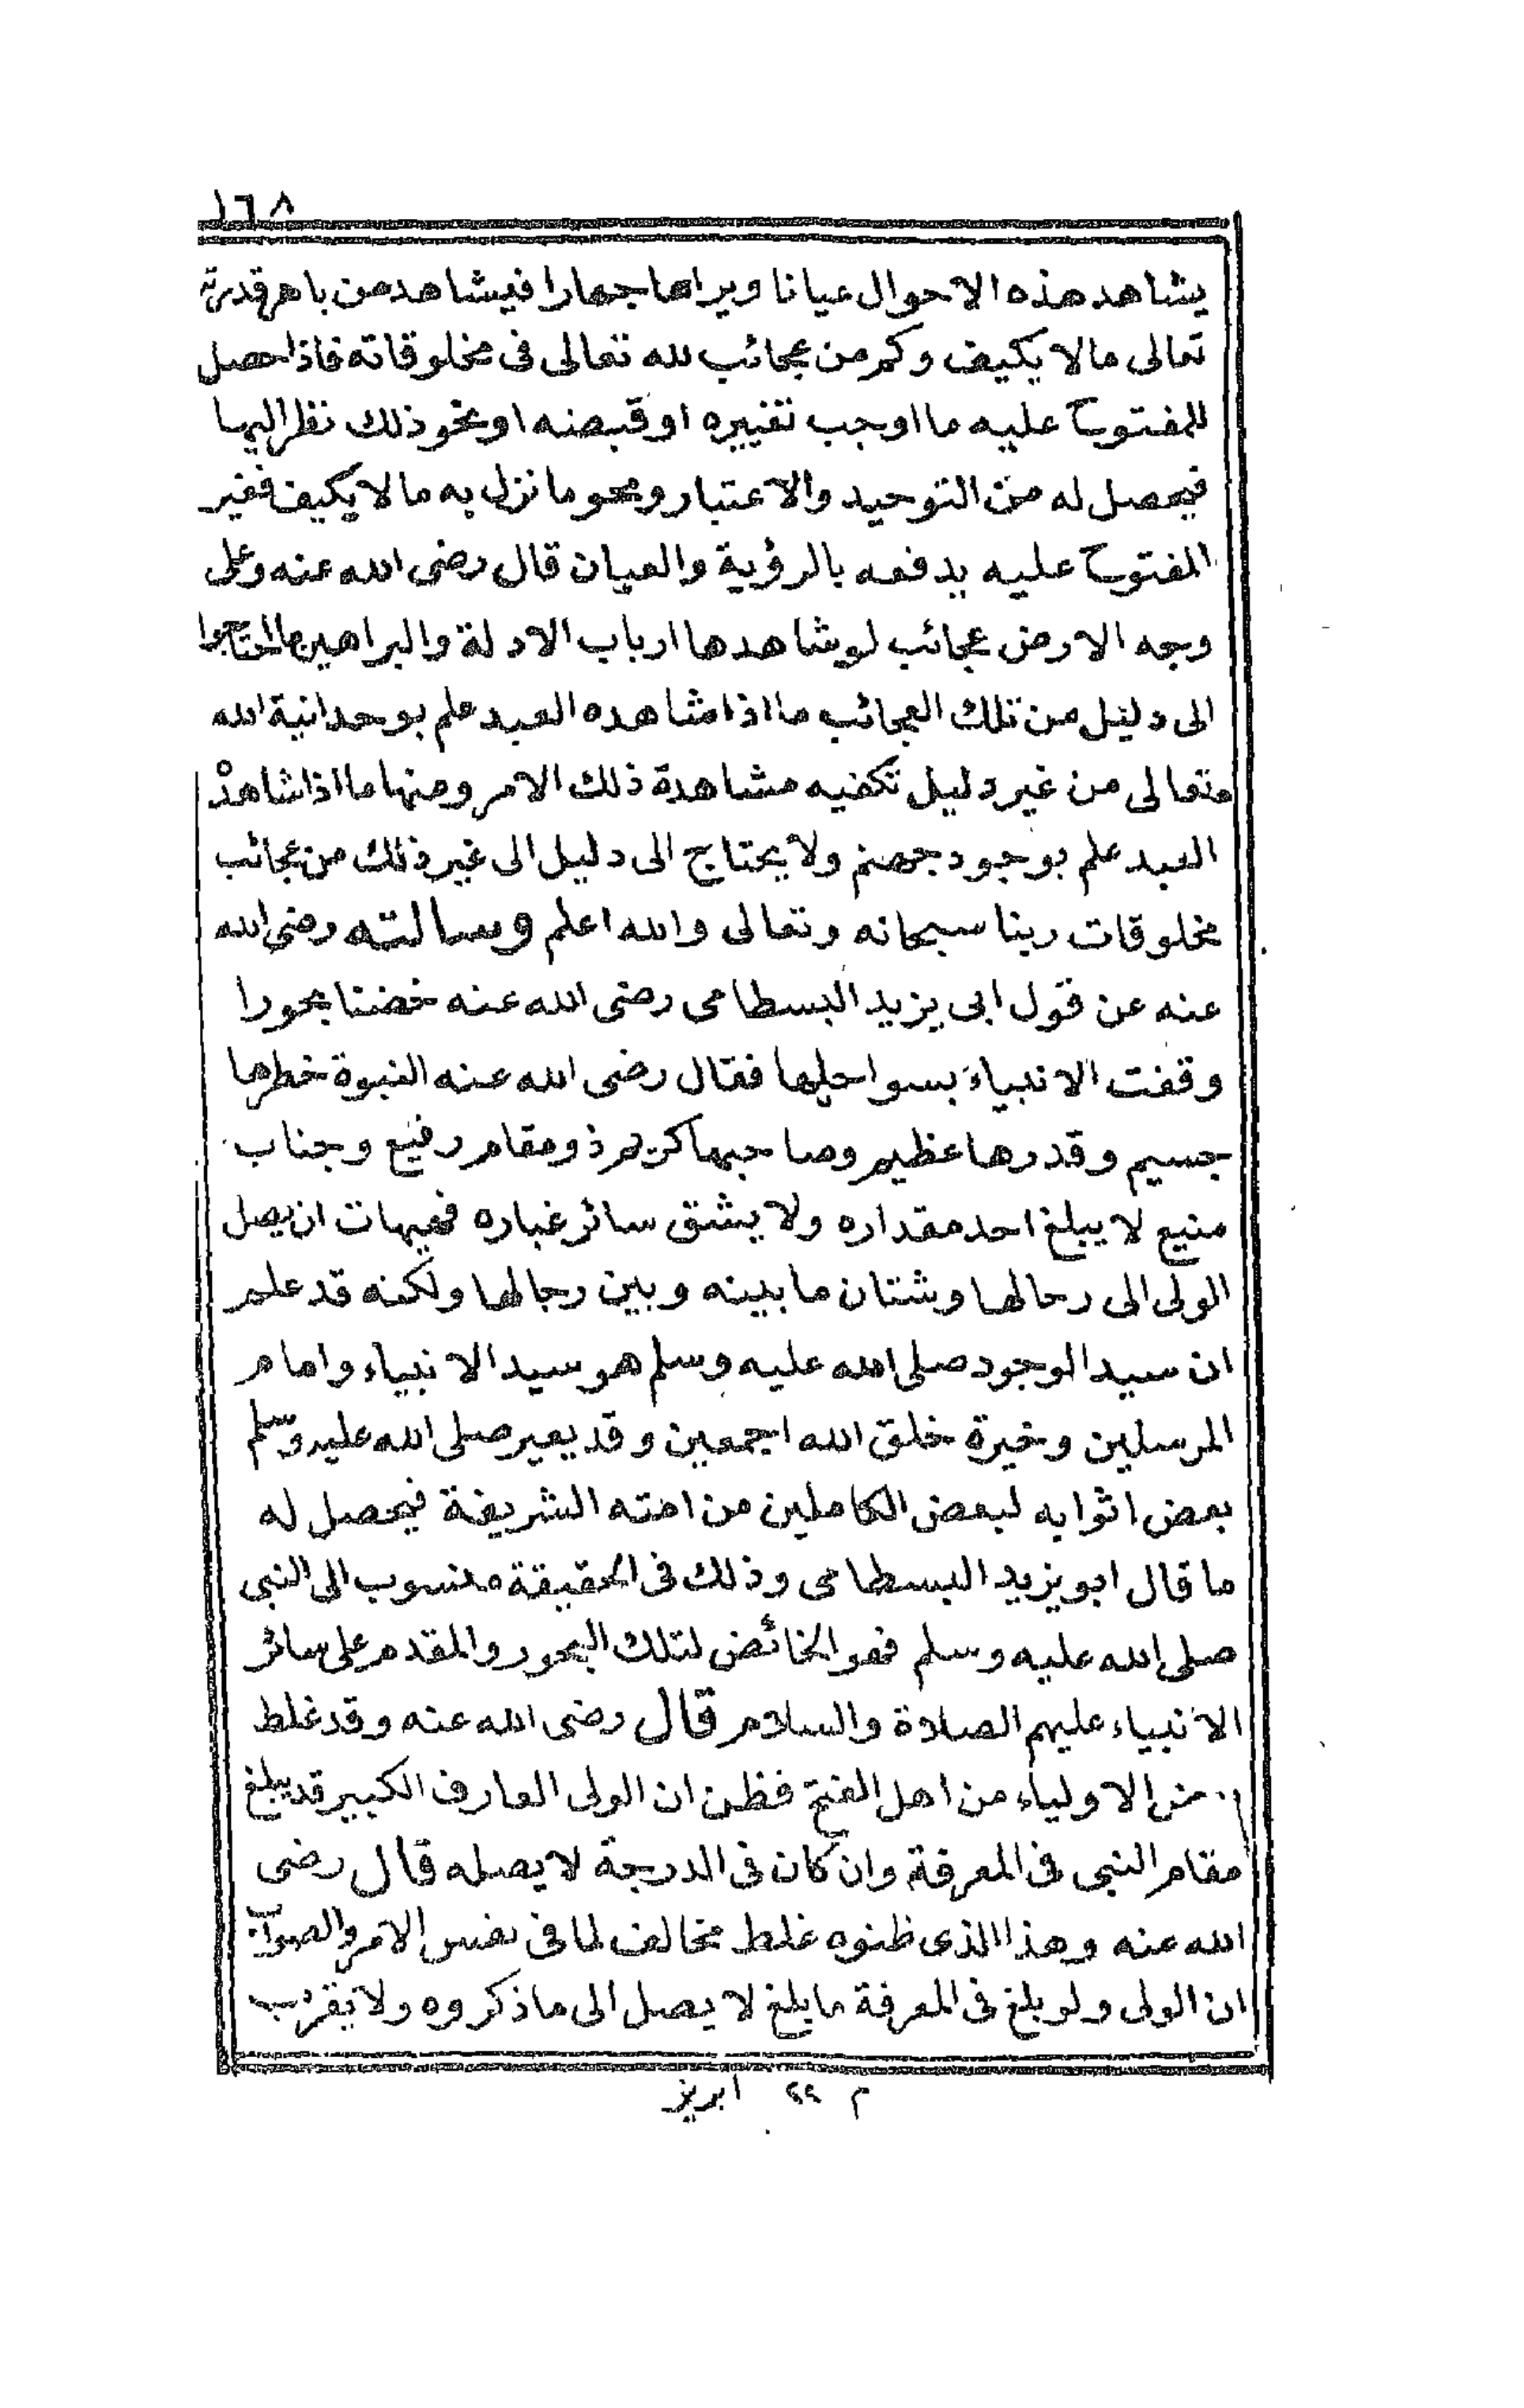 ١٦٨
يشاهد هذه الاحوال عيانا ويراها جهارا فيشاهد من باهر قدرته
تعالى ما لا يكيف وكم من عجائب لله تعالى فى مخلوقاته فاذا حصل
للمفتوح عليه ما اوجب تغييره او قبضه او نحو ذلك نظر اليها
فيحصل له من التوحيد والاعتبار ومحو ما نزل به ما لا يكيف فغير
المفتوح عليه يدفعه بالرؤية والعيان قال رضى الله عنه وعلى
وجه الارض عجائب لو شاهدها ارباب الادلة والبراهين ما احتاجوا
الى دليل من تلك العجائب ما اذا شاهده العبد علم بوحدانية الله
تعالى من غير دليل تكفيه مشاهدة ذلك الامر ومنها ما اذا شاهده
العبد علم بوجود جهنم ولا يحتاج الى دليل الى غير ذلك من عجائب
مخلوقات ربنا سبحانه وتعالى والله اعلم وسالته رضى الله
عنه عن قول ابى يزيد البسطامى رضى الله عنه خضنا بحورا
وقفت الانبياء بسواحلها فقال رضى الله عنه النبوة خطرها
جسيم وقدرها عظيم وصاحبها كريم ذو مقام رفيع وجناب
منيع لا يبلغ احد مقداره ولا يشق سائر غباره فهيهات ان يصل
الولى الى رحالها وشتان ما بينه وبين رجالها ولكنه قد علم
ان سيد الوجود صلى الله عليه وسلم هو سيد الانبياء وامام
المرسلين وخيرة خلق الله اجمعين وقد يعير صلى الله عليه وسلم
بعض اثوابه لبعض الكاملين من امته الشريفة فيحصل له
ما قال ابو يزيد البسطامى وذلك فى الحقيقة منسوب الى النبى
صلى الله عليه وسلم فهو الخائض لتلك البحور والمقدم على سائر
الانبياء عليهم الصلاة والسلام قال رضى الله عنه وقد غلط
من الاولياء من اهل الفتح فظن ان الولى العارف الكبير قد يبلغ
مقام النبى فى المعرفة وان كان فى الدرجة لا يصله قال رضى
الله عنه وهذا الذى ظنوه غلط مخالف لما فى نفس الامر والصواب
ان الولى ولو بلغ فى المعرفة ما بلغ لا يصل الى ما ذكروه ولا يقرب
م ٢٢ ابريز